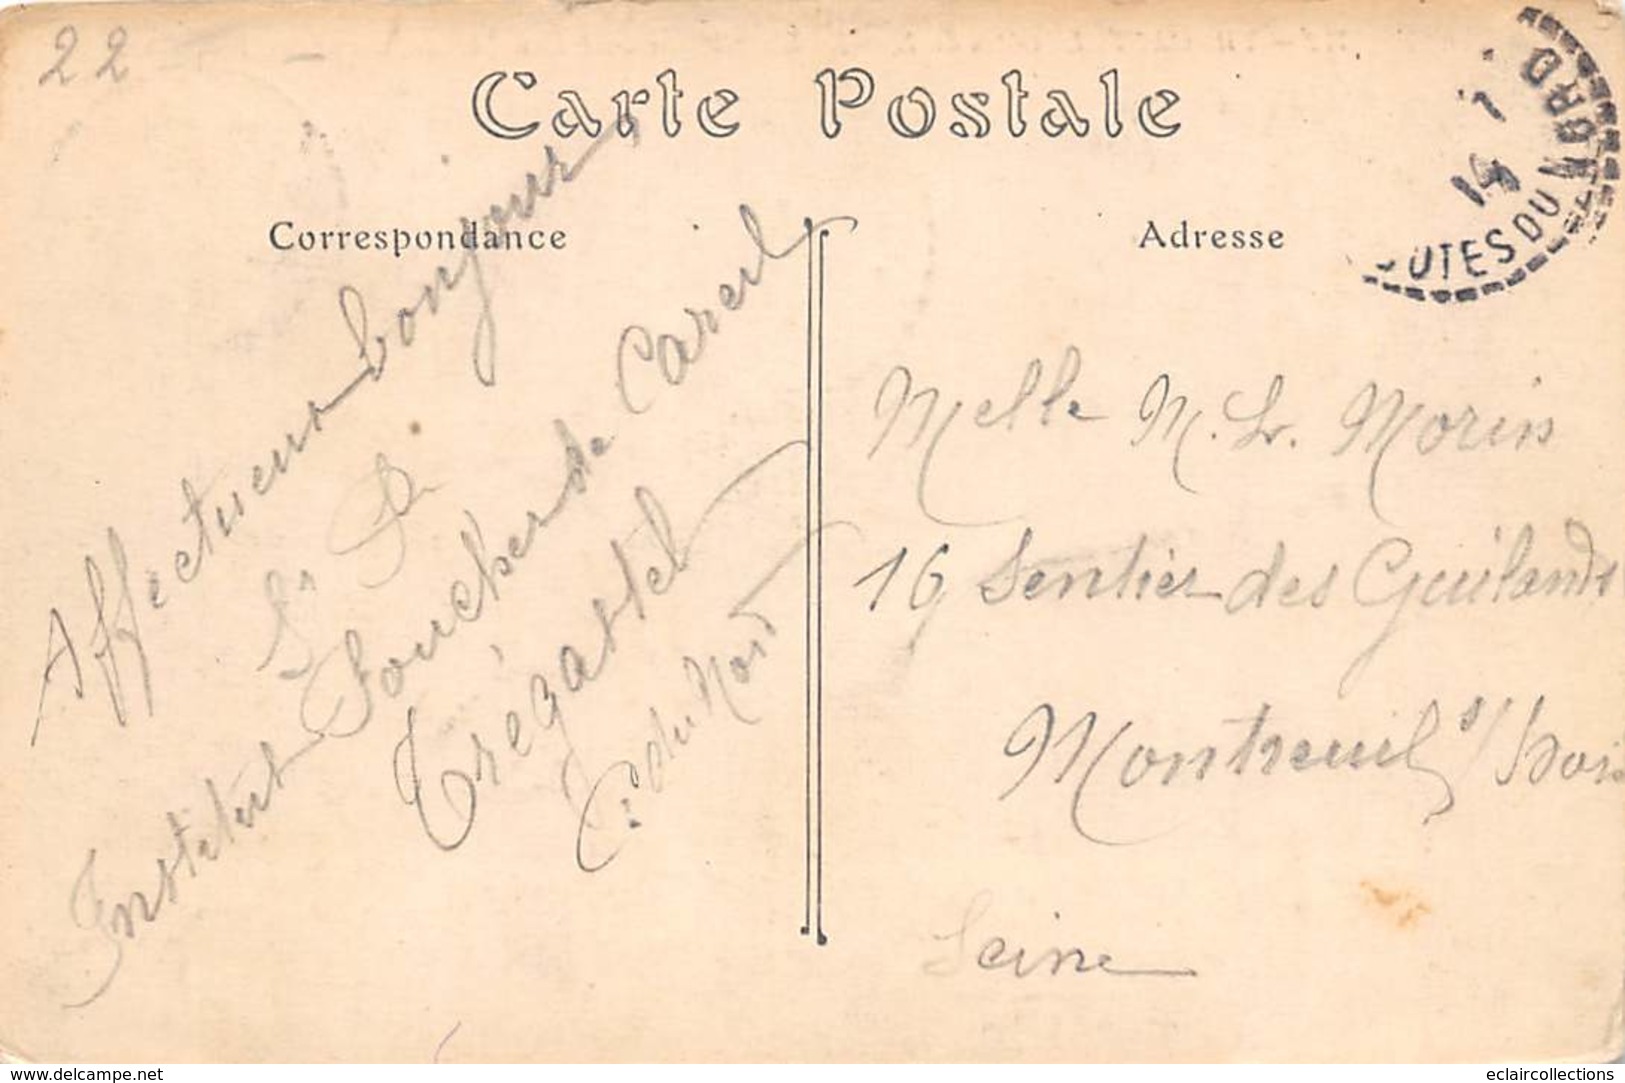 22
Carte Postale
14
UTES DU NORD
Correspondance
Adresse
Affectueux bonjour,
Institut Foucher de Careil
Trégastel
C. du Nord
Melle M. L. Morin
16 Sentier des Guilands
Montreuil s/ Bois
Seine
www.delcampe.net
eclaircollections